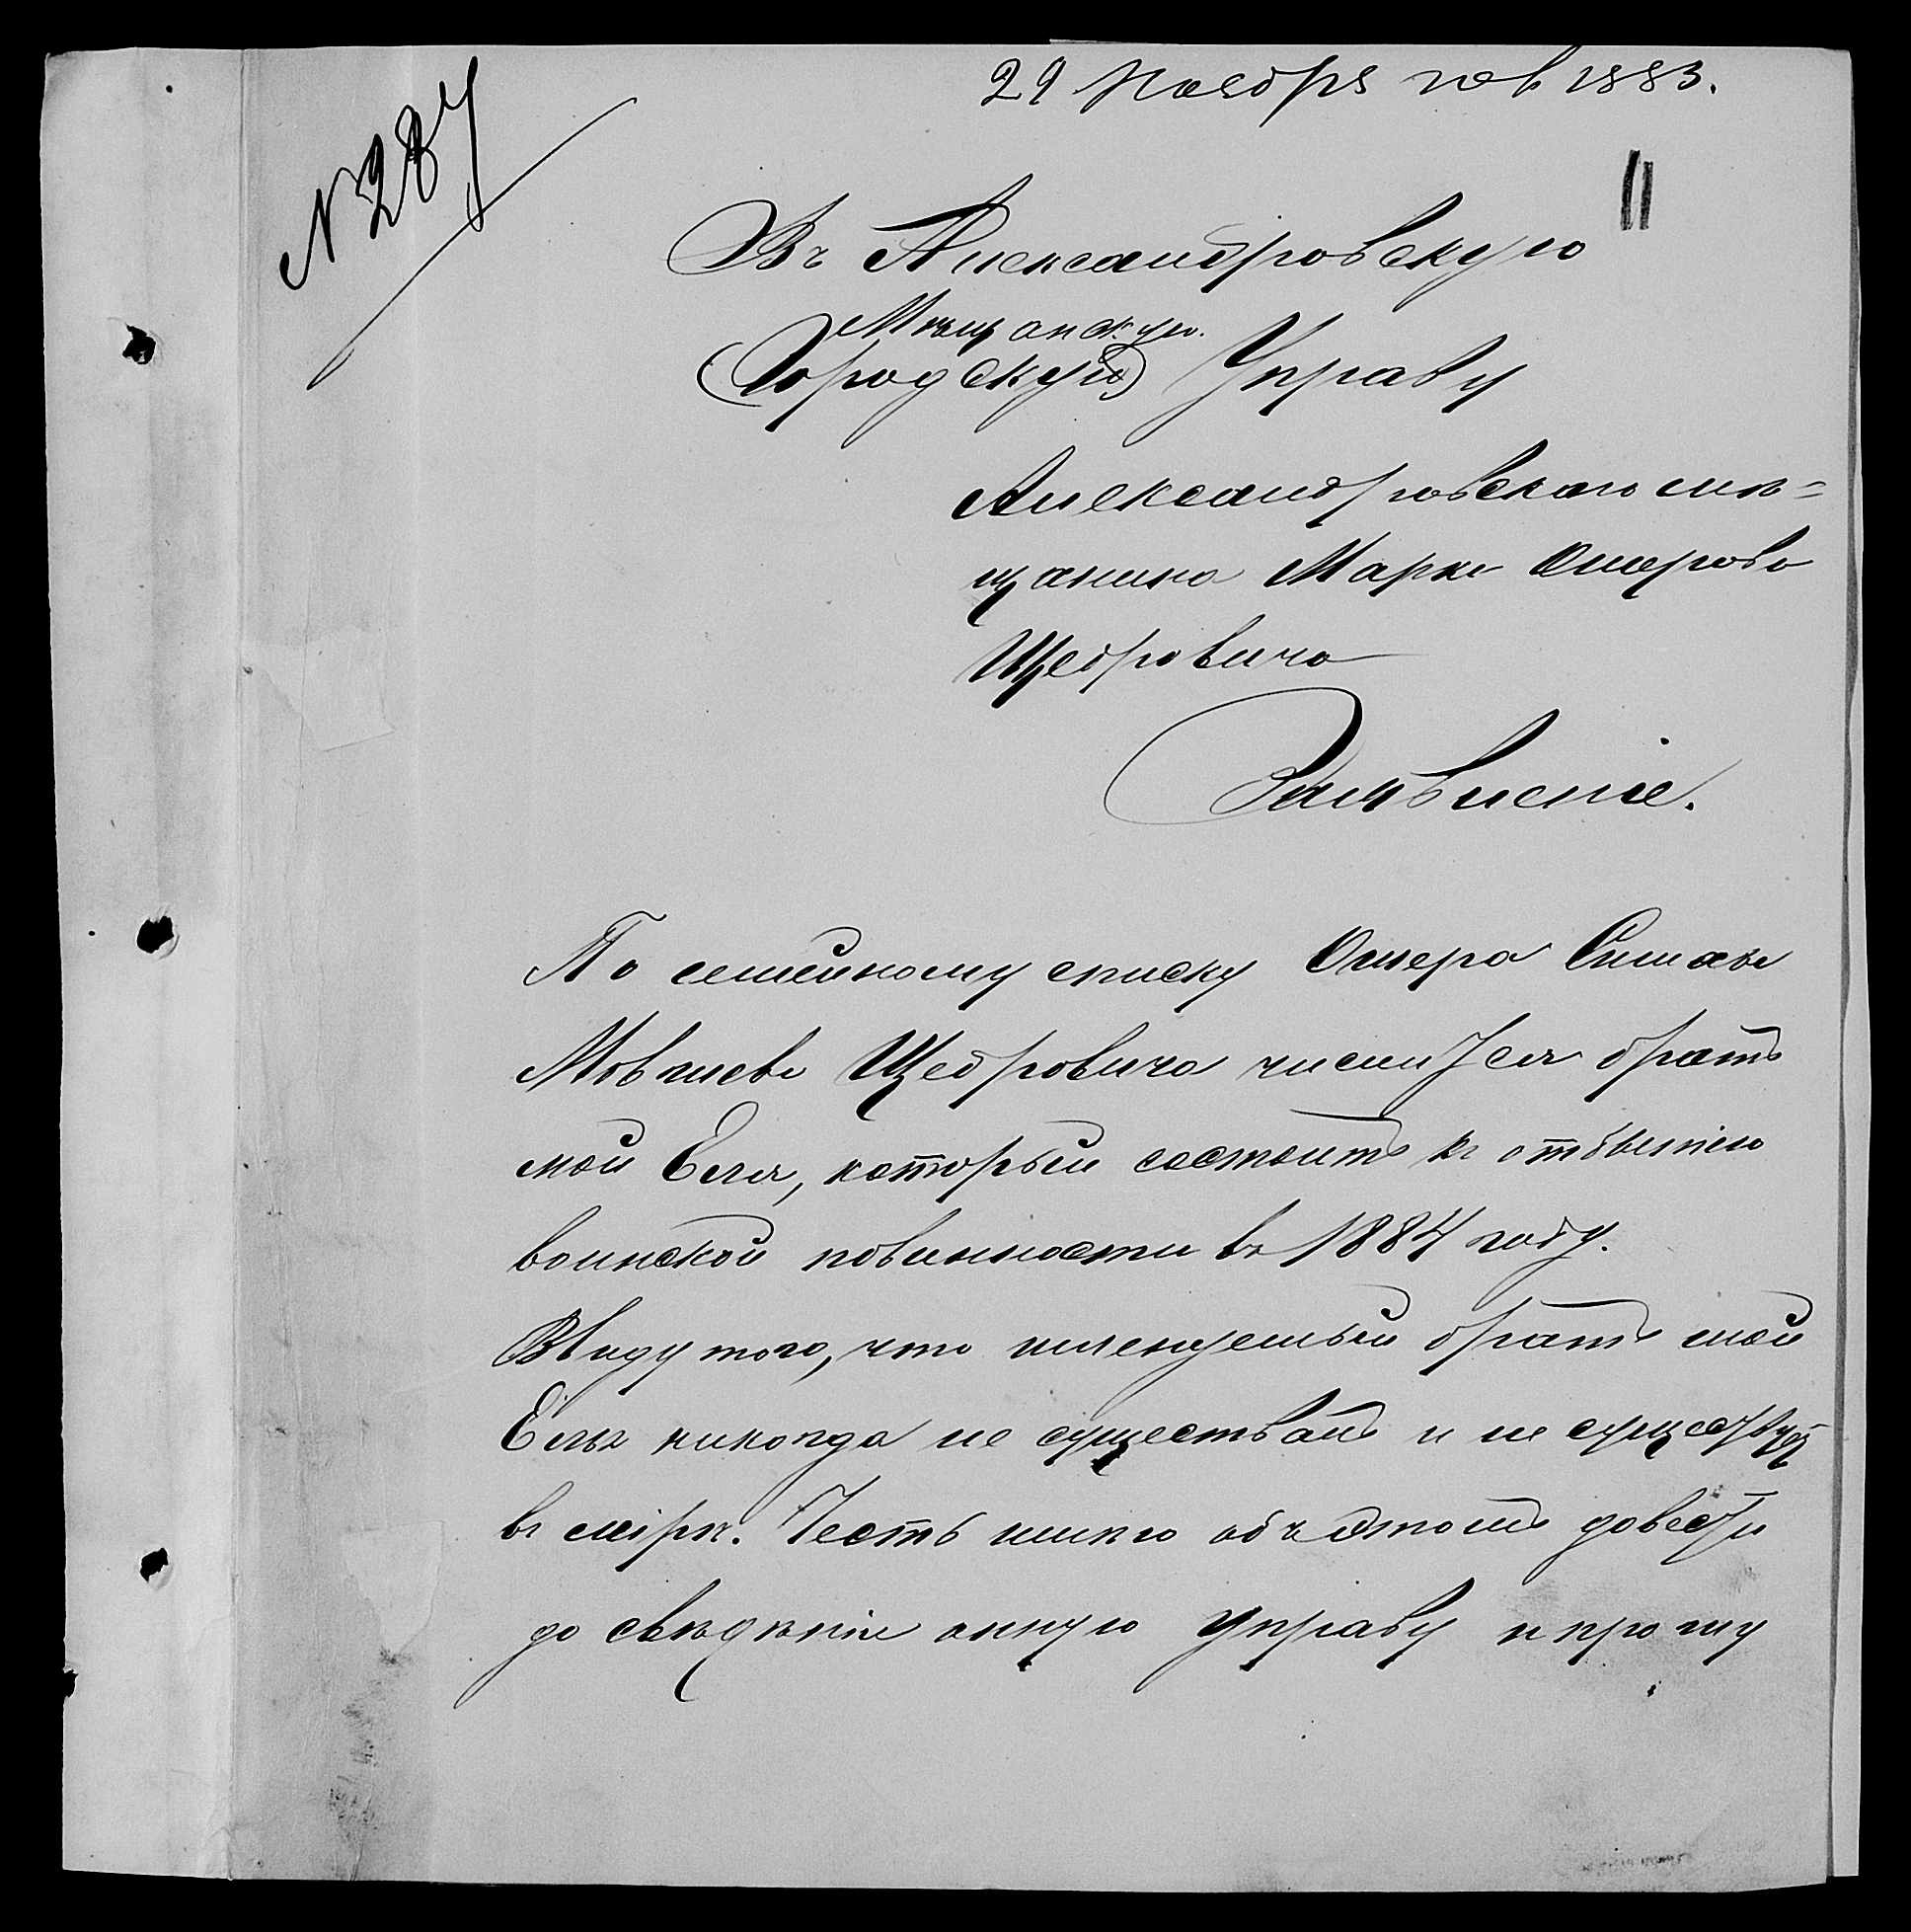 29 Ноября 1883.
№ 287
11
Въ Александровскую
Мѣщанскую.
(Городскую) Управу
Александровскаго мѣ=
щанина Марки Ошерова
Щедровича
Заявленіе.
По семейному списку Ошера Симхи
Мовшева Щедровича числится братъ
мой Еля, который состоитъ къ отбытію
воинской повинности въ 1884 году.
Ввиду того, что именуемый братъ мой
Еля никогда не существовалъ и не существуетъ
въ мірѣ. Честь имѣю объ этомъ довести
до свѣдѣніе онную Управу и прошу